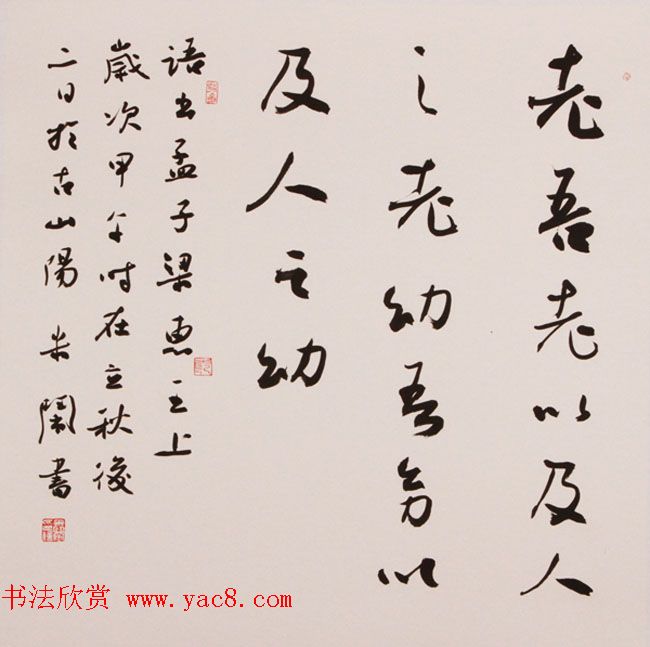 老吾老以及人
之老幼吾幼以
及人之幼
语出孟子梁惠王上
歲次甲午时在立秋後
二日於古山陽 米鬧書
书法欣赏 www.yac8.com